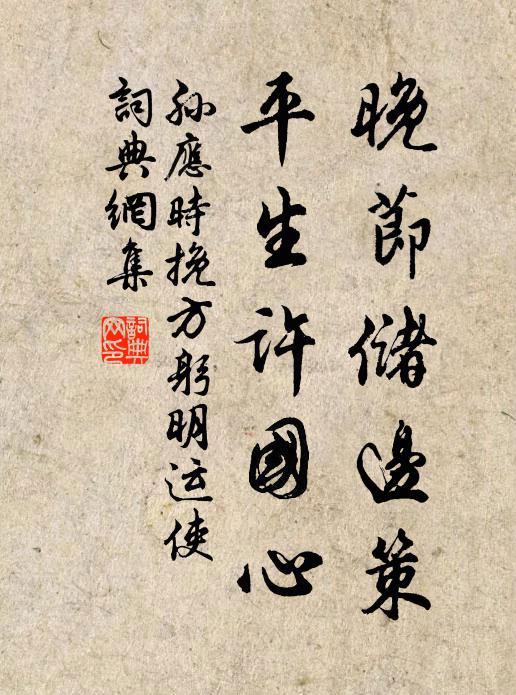 晚節儲邊策
平生許國心
孙應時挽方躬明运使
詞典網集
詞典網印